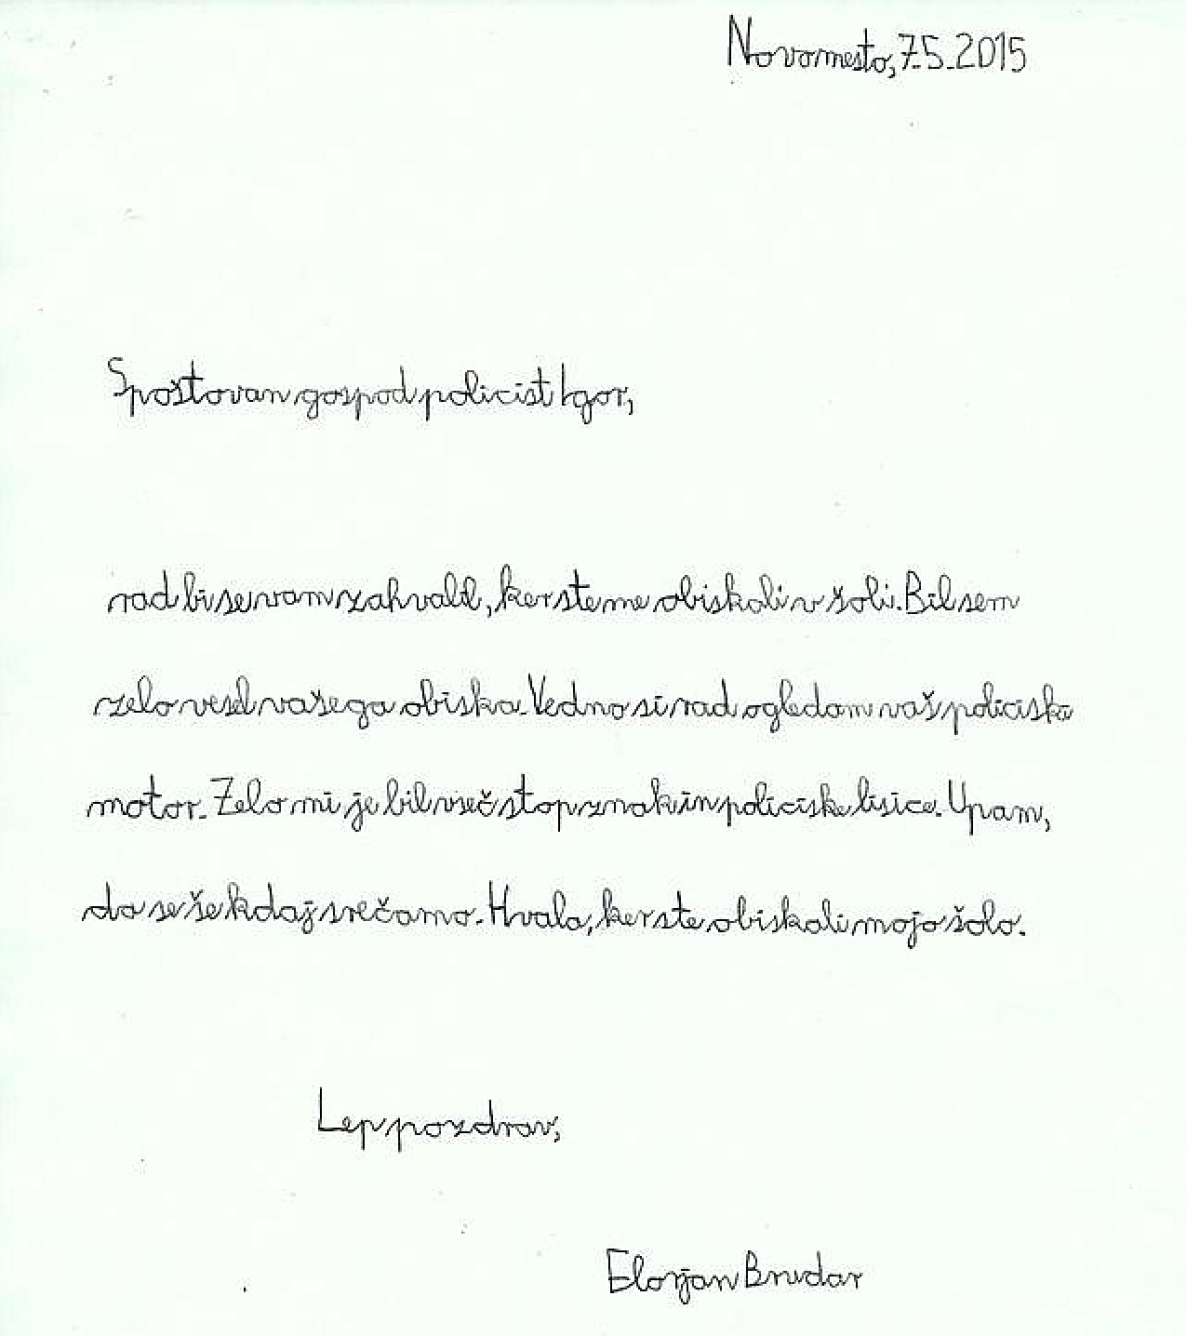 Novo mesto, 7.5.2015
Spoštovan gospod policist Igor,
rad bi se vam zahvalil, ker ste me obiskali v šoli. Bil sem
zelo vesel vašega obiska. Vedno si rad ogledam vaš policiski
motor. Zelo mi je bil všeč stop znak in policiske lisice. Upam,
da se še kdaj srečamo. Hvala, ker ste obiskali mojo šolo.
Lep pozdrav,
Florjan Brudar